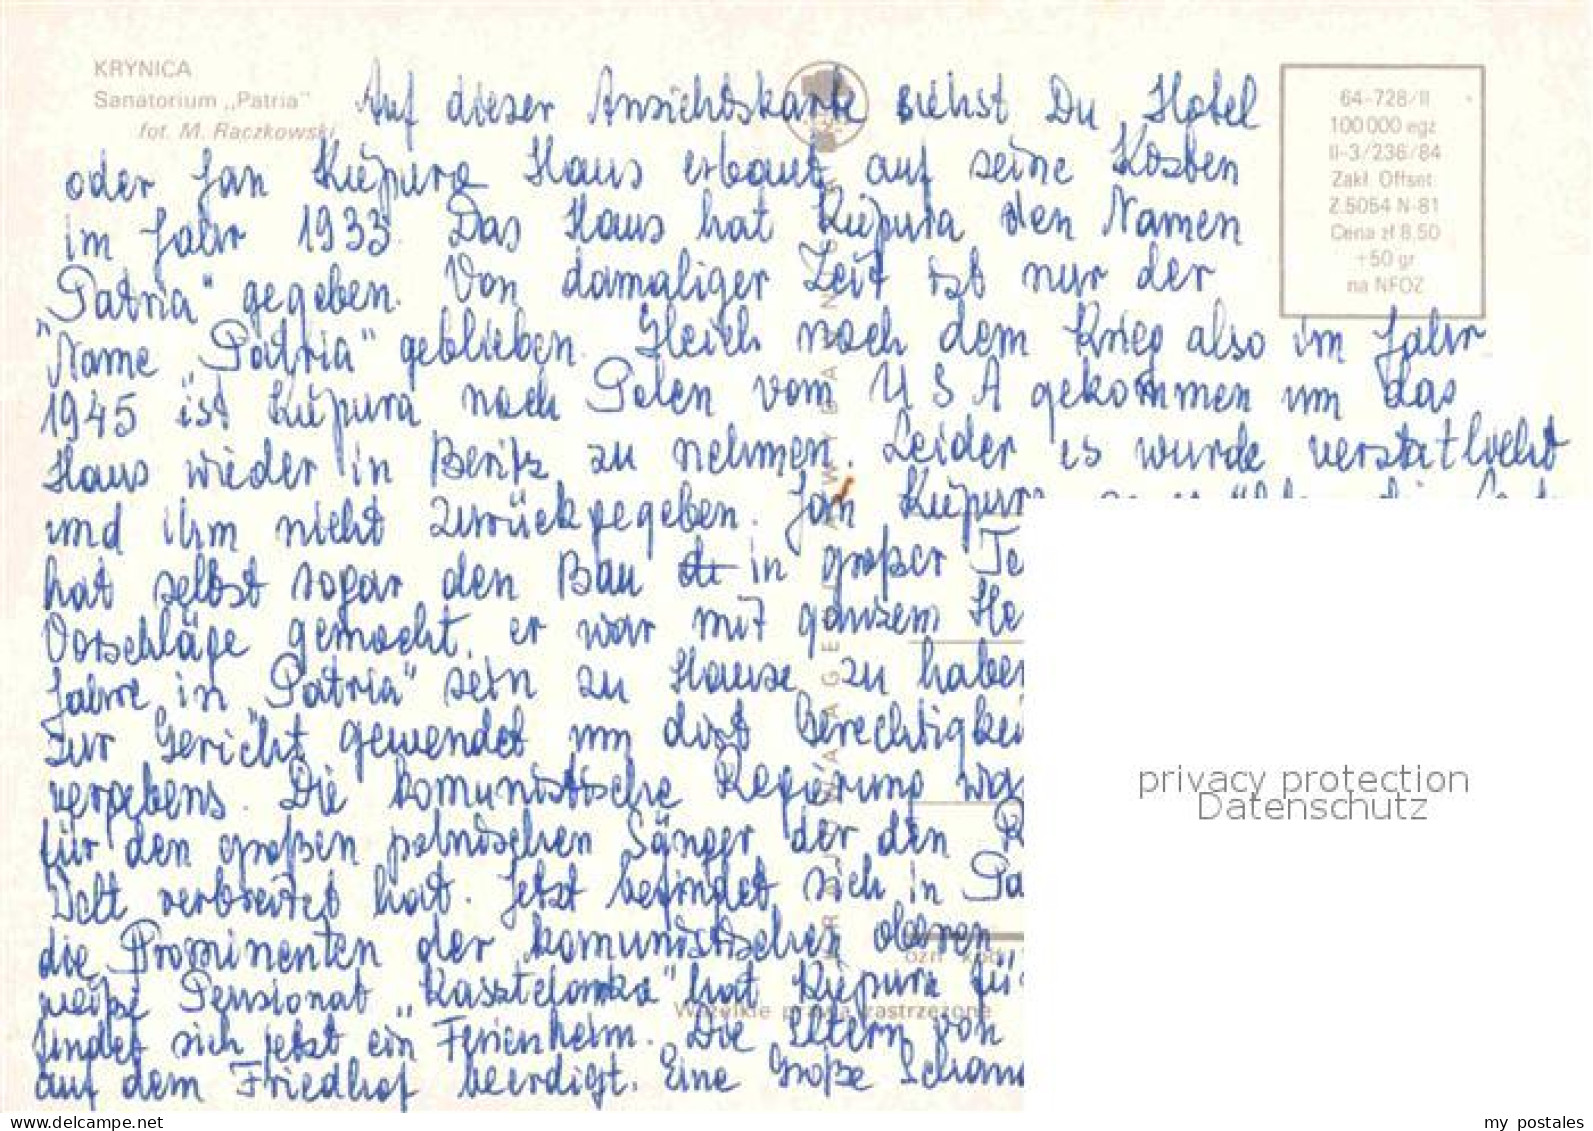 KRYNICA
Sanatorium „Patria"
fot. M. Raczkowski
64-728/II
100 000 egz
II-3/236/84
Zakł. Offset.
Z.5054 N-81
Cena zł 8,50
+50 gr
na NFOZ
Auf dieser Ansichtskarte siehst Du Hotel
oder Jan Kiepura Haus erbaut auf seine Kosten
im Jahr 1933. Das Haus hat Kiepura den Namen
"Patria" gegeben. Von damaliger Zeit ist nur der
Name „Patria" geblieben. Gleich nach dem Krieg also im Jahr
1945 ist Kiepura nach Polen vom USA gekommen um das
Haus wieder in Besitz zu nehmen. Leider es wurde verstatlicht
und ihm nicht zurückgegeben. Jan Kiepura
hat selbst sogar den Bau in großer Te
Vorschläge gemacht, er war mit ganzem He
Jahre in „Patria" sein zu Hause zu haben
zur Gericht gewendet um dort Berechtigkei
vergebens. Die komunistische Regierung wa
für den großen polnischen Sänger der den R
Welt verbreitet hat. Jetzt befindet sich in Pa
die Prominenten der komunistischen oberen
weiße Pensionat „Kasztelanka" hat Kiepura fü
findet sich jetzt ein Ferienheim. Die Eltern von
auf dem Friedhof beerdigt. Eine Große Schan
Wszelkie prawa zastrzeżone
privacy protection
Datenschutz
www.delcampe.net
my_postales